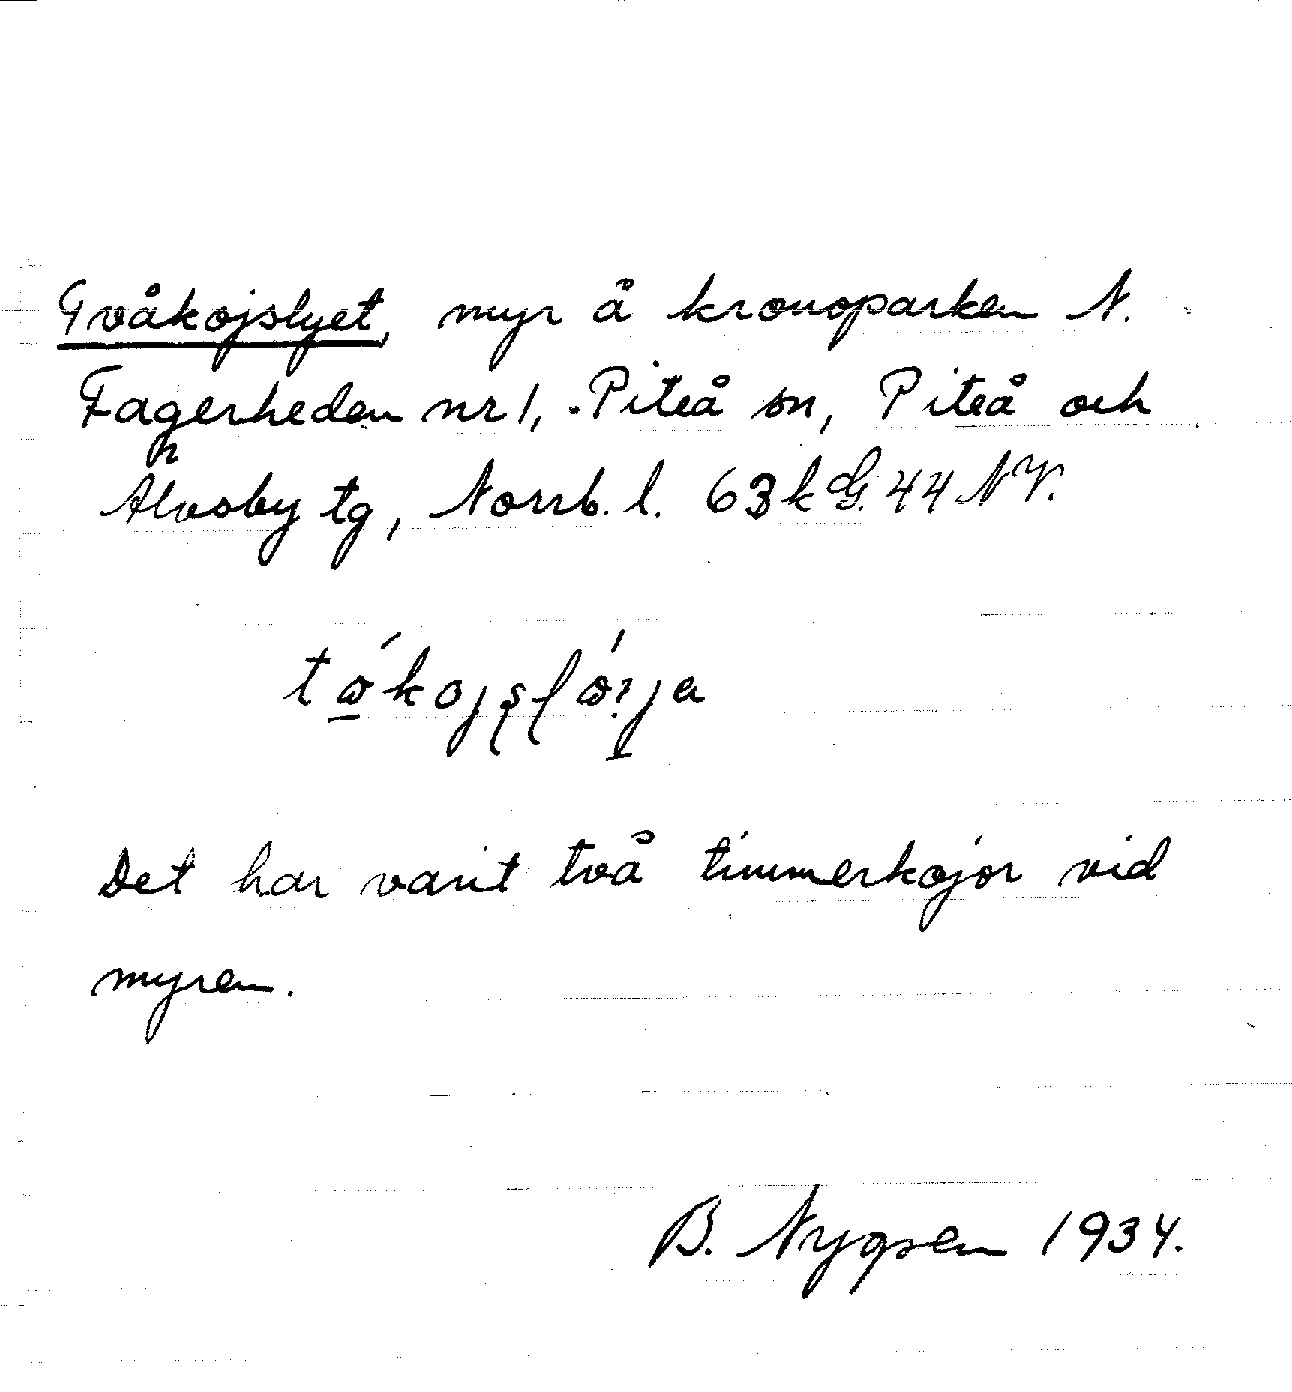 Tvåkojslyet, myr å kronoparken N.
Fagerheden nr 1, Piteå sn, Piteå och
Älvsby tg, Norrb. l. 63 k G. 44 NV.
Det har varit två timmerkojor vid
myren.
B. Nygren 1934.